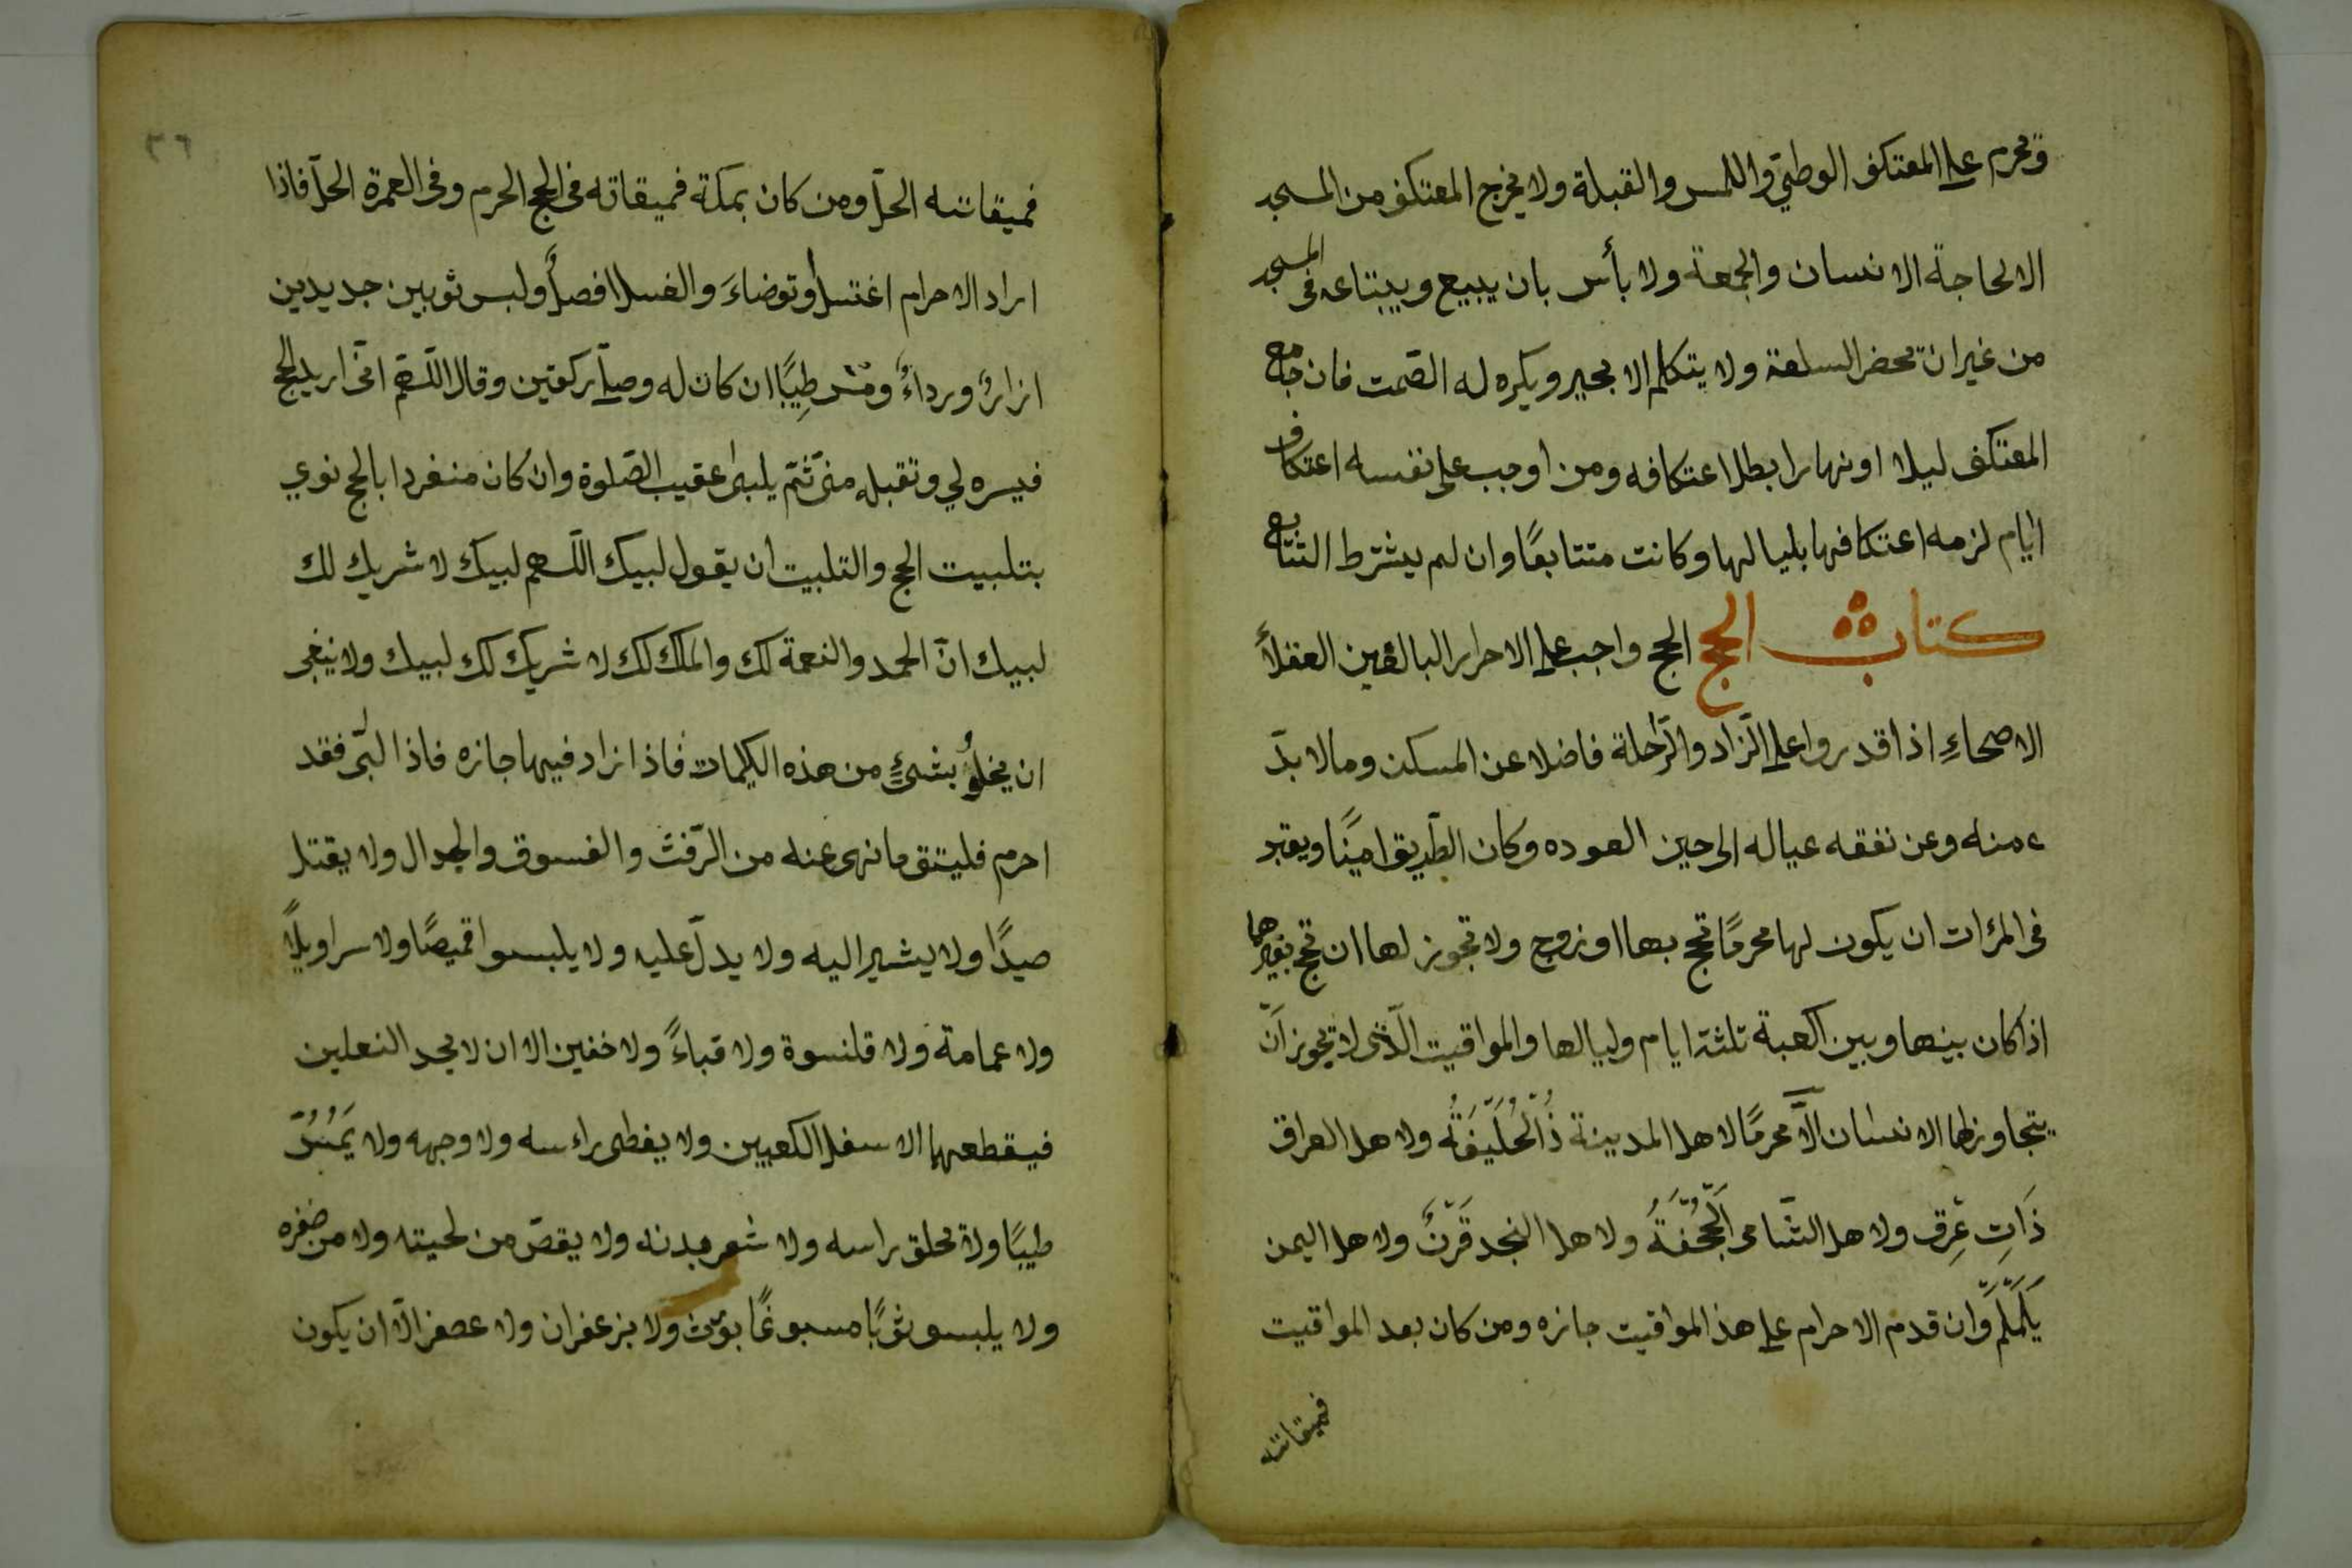 وتحرم على المعتكف الوطئ واللمس والقبلة ولا يخرج المعتكف من المسجد
الا لحاجة الانسان والجمعة ولا بأس بان يبيع ويبتاعه فى المسجد
من غير ان تحضر السلعة ولا يتكلم الا بخير ويكره له الصّمت فان جامع
المعتكف ليلا او نهارا بطل اعتكافه ومن اوجب على نفسه اعتكاف
ايّام لزمه اعتكافها بلياليها وكانت متتابعًا وان لم يشترط التتابع
كتاب الحج الحج واجب على الاحرار البالغين العقلأ
الاصحاءِ اذا قدروا على الزّاد والرّاحلة فاضلا عن المسكن وما لا بدّ
منه وعن نفقه عياله الى حين العوده وكان الطّريق امينًا ويعتبر
فى المرٔات ان يكون لها محرمًا تحج بها او زوج ولا تجوز لها ان تحج بغيرهما
اذا كان بينها وبين الكعبة ثلثة ايام وليالها والمواقيت الّذى لا يجوز انّ
يتجاوزها الانسان الاَّ محرمًا لاهل المدينة ذُالْحُلَيْفَةُ ولاهل العراق
ذَاتِ عِرق ولاهل الشّامى الْجُحْفَةُ ولاهل النجد قَرْنٌ ولاهل اليمن
يَلَمْلَمْ وان قدم الاحرام على هذ المواقيت جازه ومن كان بعد المواقيت
فميقاته
٣٦
فميقاته الحلّ ومن كان بمكة فميقاته فى الحج الحرم وفى العمرة الحلّ فاذا
اراد الاحرام اغتسل او توضاءَ والغسل افضل ولبس ثوبين جديدين
ازارٌ ورداءٌ ومسّ طِيبًا ان كان له وصلّى ركعتين وقال اللّهمّ انّى اريد الحج
فيسره لي وتقبله منى ثمّ يلبى عقيب الصّلوة وان كان منفردا بالحج نوي
بتلبيت الحج والتلبيت ان يقول لبيك اللّهم لبيك لا شريك لك
لبيك انّ الحمد والنعمة لك والملك لك لا شريك لك لبيك ولا ينبغى
ان يخلُو بشئٍ من هذه الكلمات فاذا زاد فيها جازه فاذا لبّى فقد
احرم فليتق ما نهى عنه من الرّفث والفسوق والجدال ولا يقتل
صيدًا ولا يشير اليه ولا يدلّ عليه ولا يلبسوا قميصًا ولا سراويلاً
ولا عمامة ولا قلنسوة ولا قباءً ولا خفين الا ان لا يجد النعلين
فيقطعهما الاسفل الكعبين ولا يغطى راءسه ولا وجهه ولا يَمَسُّ
طيبًا ولا يحلق راسه ولا شعر بدنه ولا يقصّ من لحيته ولا من ضفره
ولا يلبسو ثوبًا مسبوغًا بورس ولا بزعفران ولا عصفر الّا ان يكون